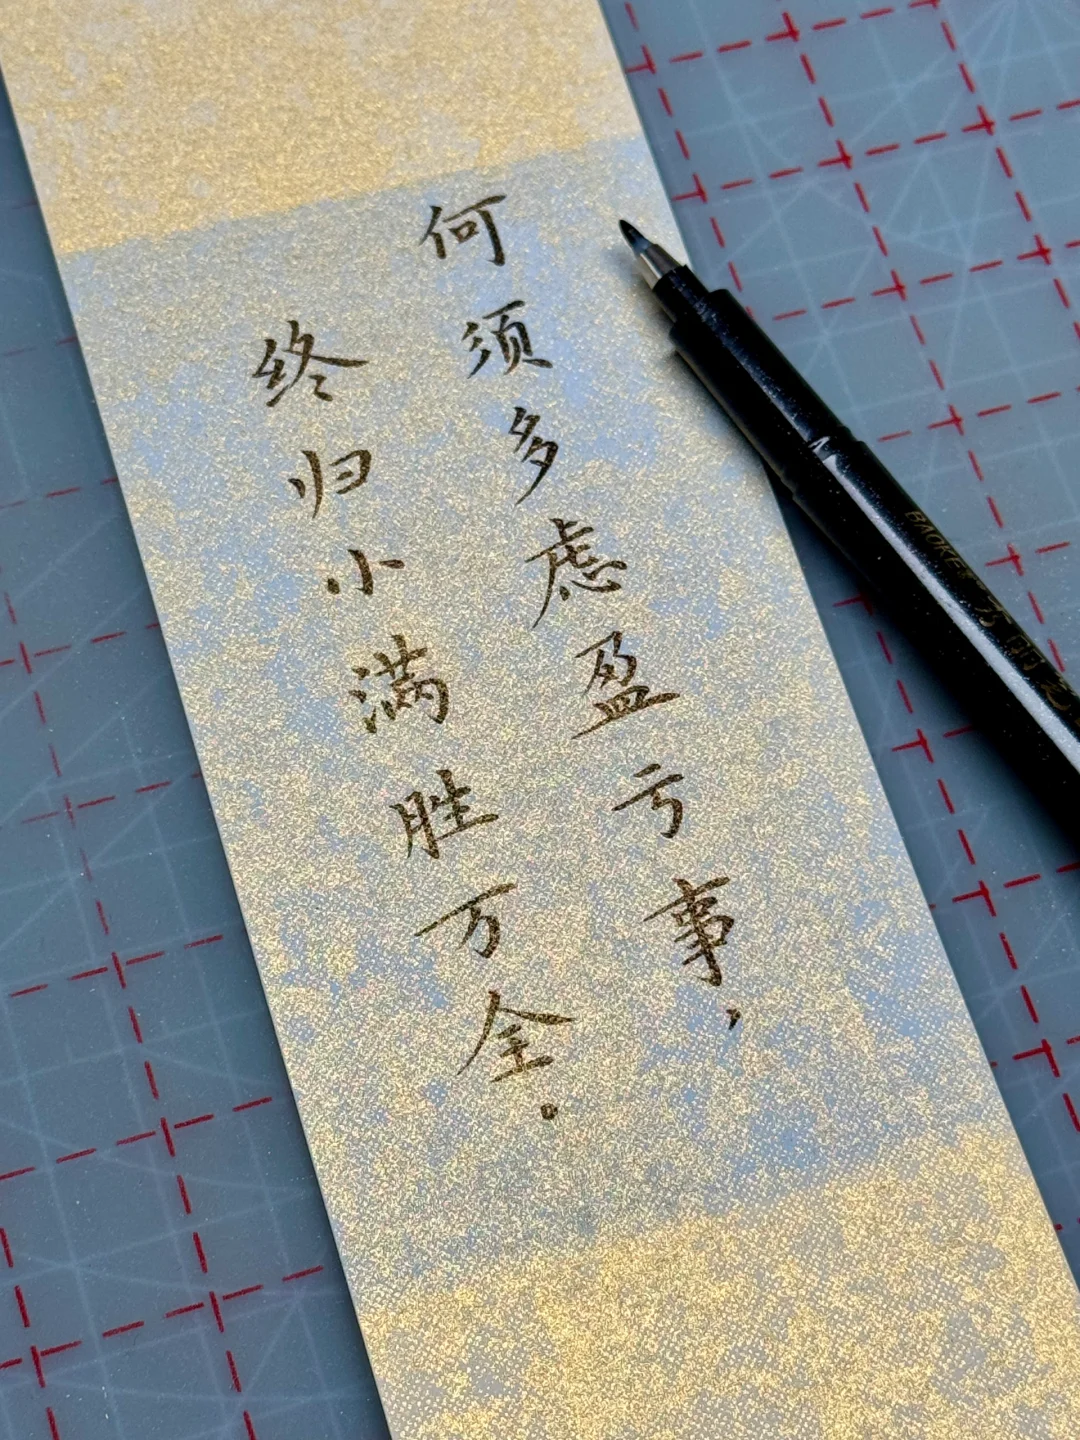 何须多虑盈亏事，
终归小满胜万全。
BAOKE